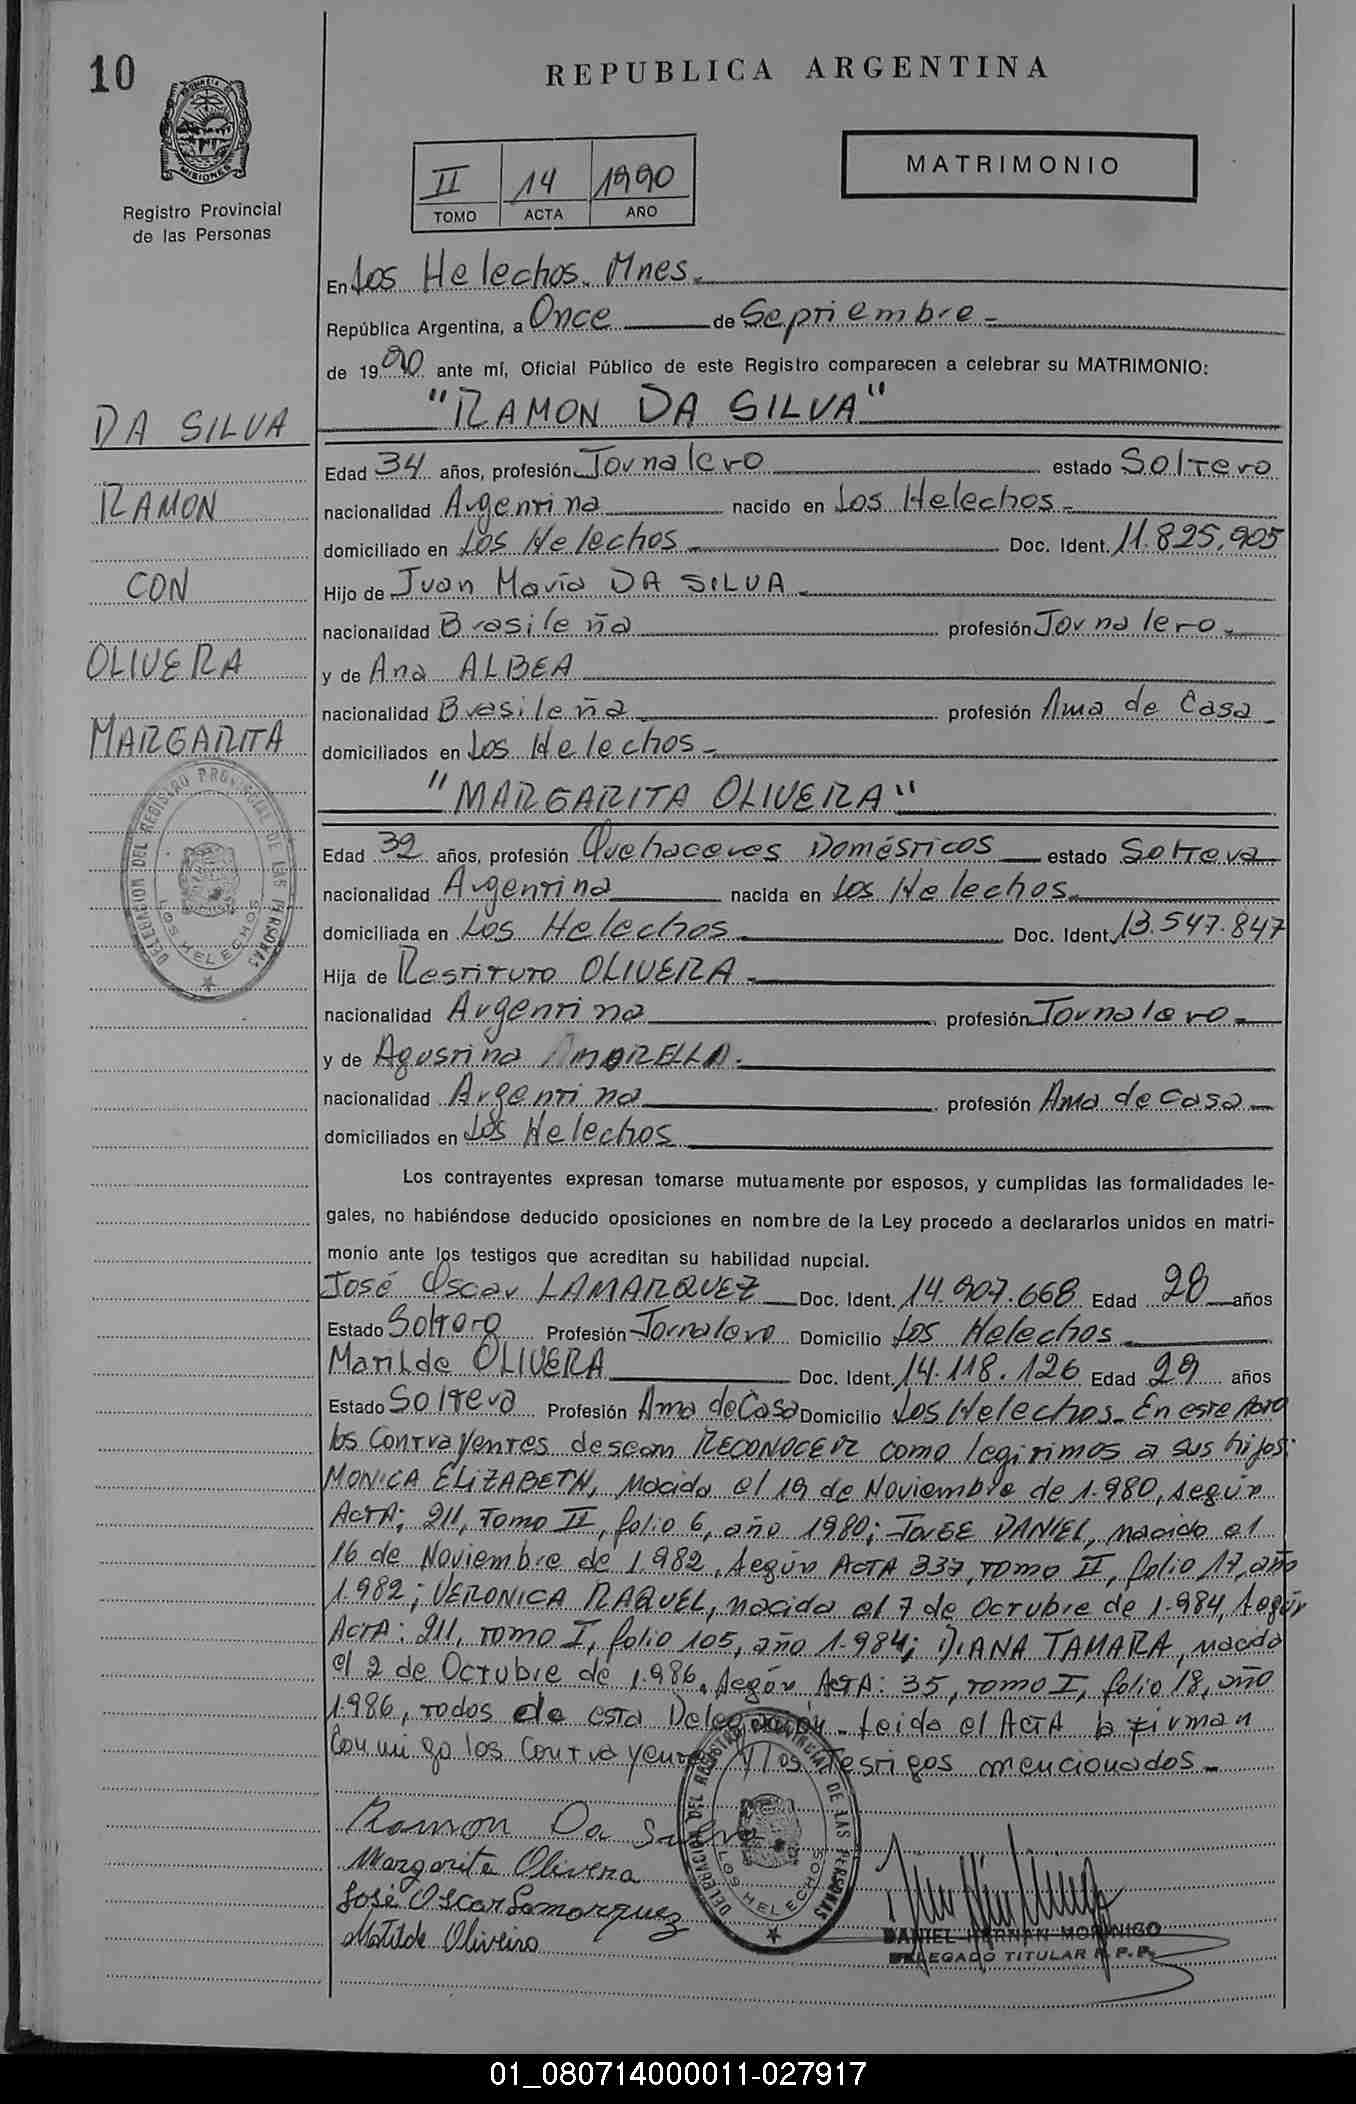 10
REPUBLICA ARGENTINA
PROVINCIA DE MISIONES
Registro Provincial
de las Personas
II 14 1990
TOMO ACTA AÑO
MATRIMONIO
En Los Helechos. Mnes.
República Argentina, a Once de Septiembre
de 1990 ante mí, Oficial Público de este Registro comparecen a celebrar su MATRIMONIO:
"RAMON DA SILVA"
DA SILVA
RAMON
CON
OLIVERA
MARGARITA
Edad 34 años, profesión Jornalero estado Soltero
nacionalidad Argentina nacido en Los Helechos
domiciliado en Los Helechos Doc. Ident. 11.825.905
Hijo de Juan María DA SILVA
nacionalidad Brasileña profesión Jornalero
y de Ana ALBEA
nacionalidad Brasileña profesión Ama de Casa
domiciliados en Los Helechos
"MARGARITA OLIVERA"
DELEGACION DEL REGISTRO PROVINCIAL DE LAS PERSONAS
LOS HELECHOS
Edad 32 años, profesión Quehaceres Domésticos estado Soltera
nacionalidad Argentina nacida en Los Helechos
domiciliada en Los Helechos Doc. Ident. 13.547.847
Hija de Restituto OLIVERA
nacionalidad Argentina profesión Jornalero
y de Agustina AMARELLA
nacionalidad Argentina profesión Ama de Casa
domiciliados en Los Helechos
Los contrayentes expresan tomarse mutuamente por esposos, y cumplidas las formalidades le-
gales, no habiéndose deducido oposiciones en nombre de la Ley procedo a declararlos unidos en matri-
monio ante los testigos que acreditan su habilidad nupcial.
José Oscar LAMARQUEZ Doc. Ident. 14.907.668 Edad 28 años
Estado Soltero Profesión Jornalero Domicilio Los Helechos
Matilde OLIVERA Doc. Ident. 14.118.126 Edad 29 años
Estado Soltera Profesión Ama de Casa Domicilio Los Helechos. En este Acto
los Contrayentes desean RECONOCER como legitimos a sus hijos:
MONICA ELIZABETH, nacida el 19 de Noviembre de 1.980, según
ACTA: 211, Tomo II, folio 6, año 1980; JORGE DANIEL, nacido el
16 de Noviembre de 1.982, según ACTA 337, Tomo II, folio 17, año
1.982; VERONICA RAQUEL, nacida el 7 de Octubre de 1.984, según
ACTA: 211, Tomo I, folio 105, año 1.984; DIANA TAMARA, nacida
el 2 de Octubre de 1.986, según ACTA: 35, Tomo I, folio 18, año
1.986, todos de esta Delegación. Leida el ACTA la firman
Conmigo los Contrayentes y los Testigos mencionados
Ramon Da Silva
Margarita Olivera
José Oscar Lamarquez
Matilde Oliveira
DELEGACION DEL REGISTRO PROVINCIAL DE LAS PERSONAS
LOS HELECHOS
DANIEL HERNAN MORINIGO
DELEGADO TITULAR R.P.P.
01_080714000011-027917